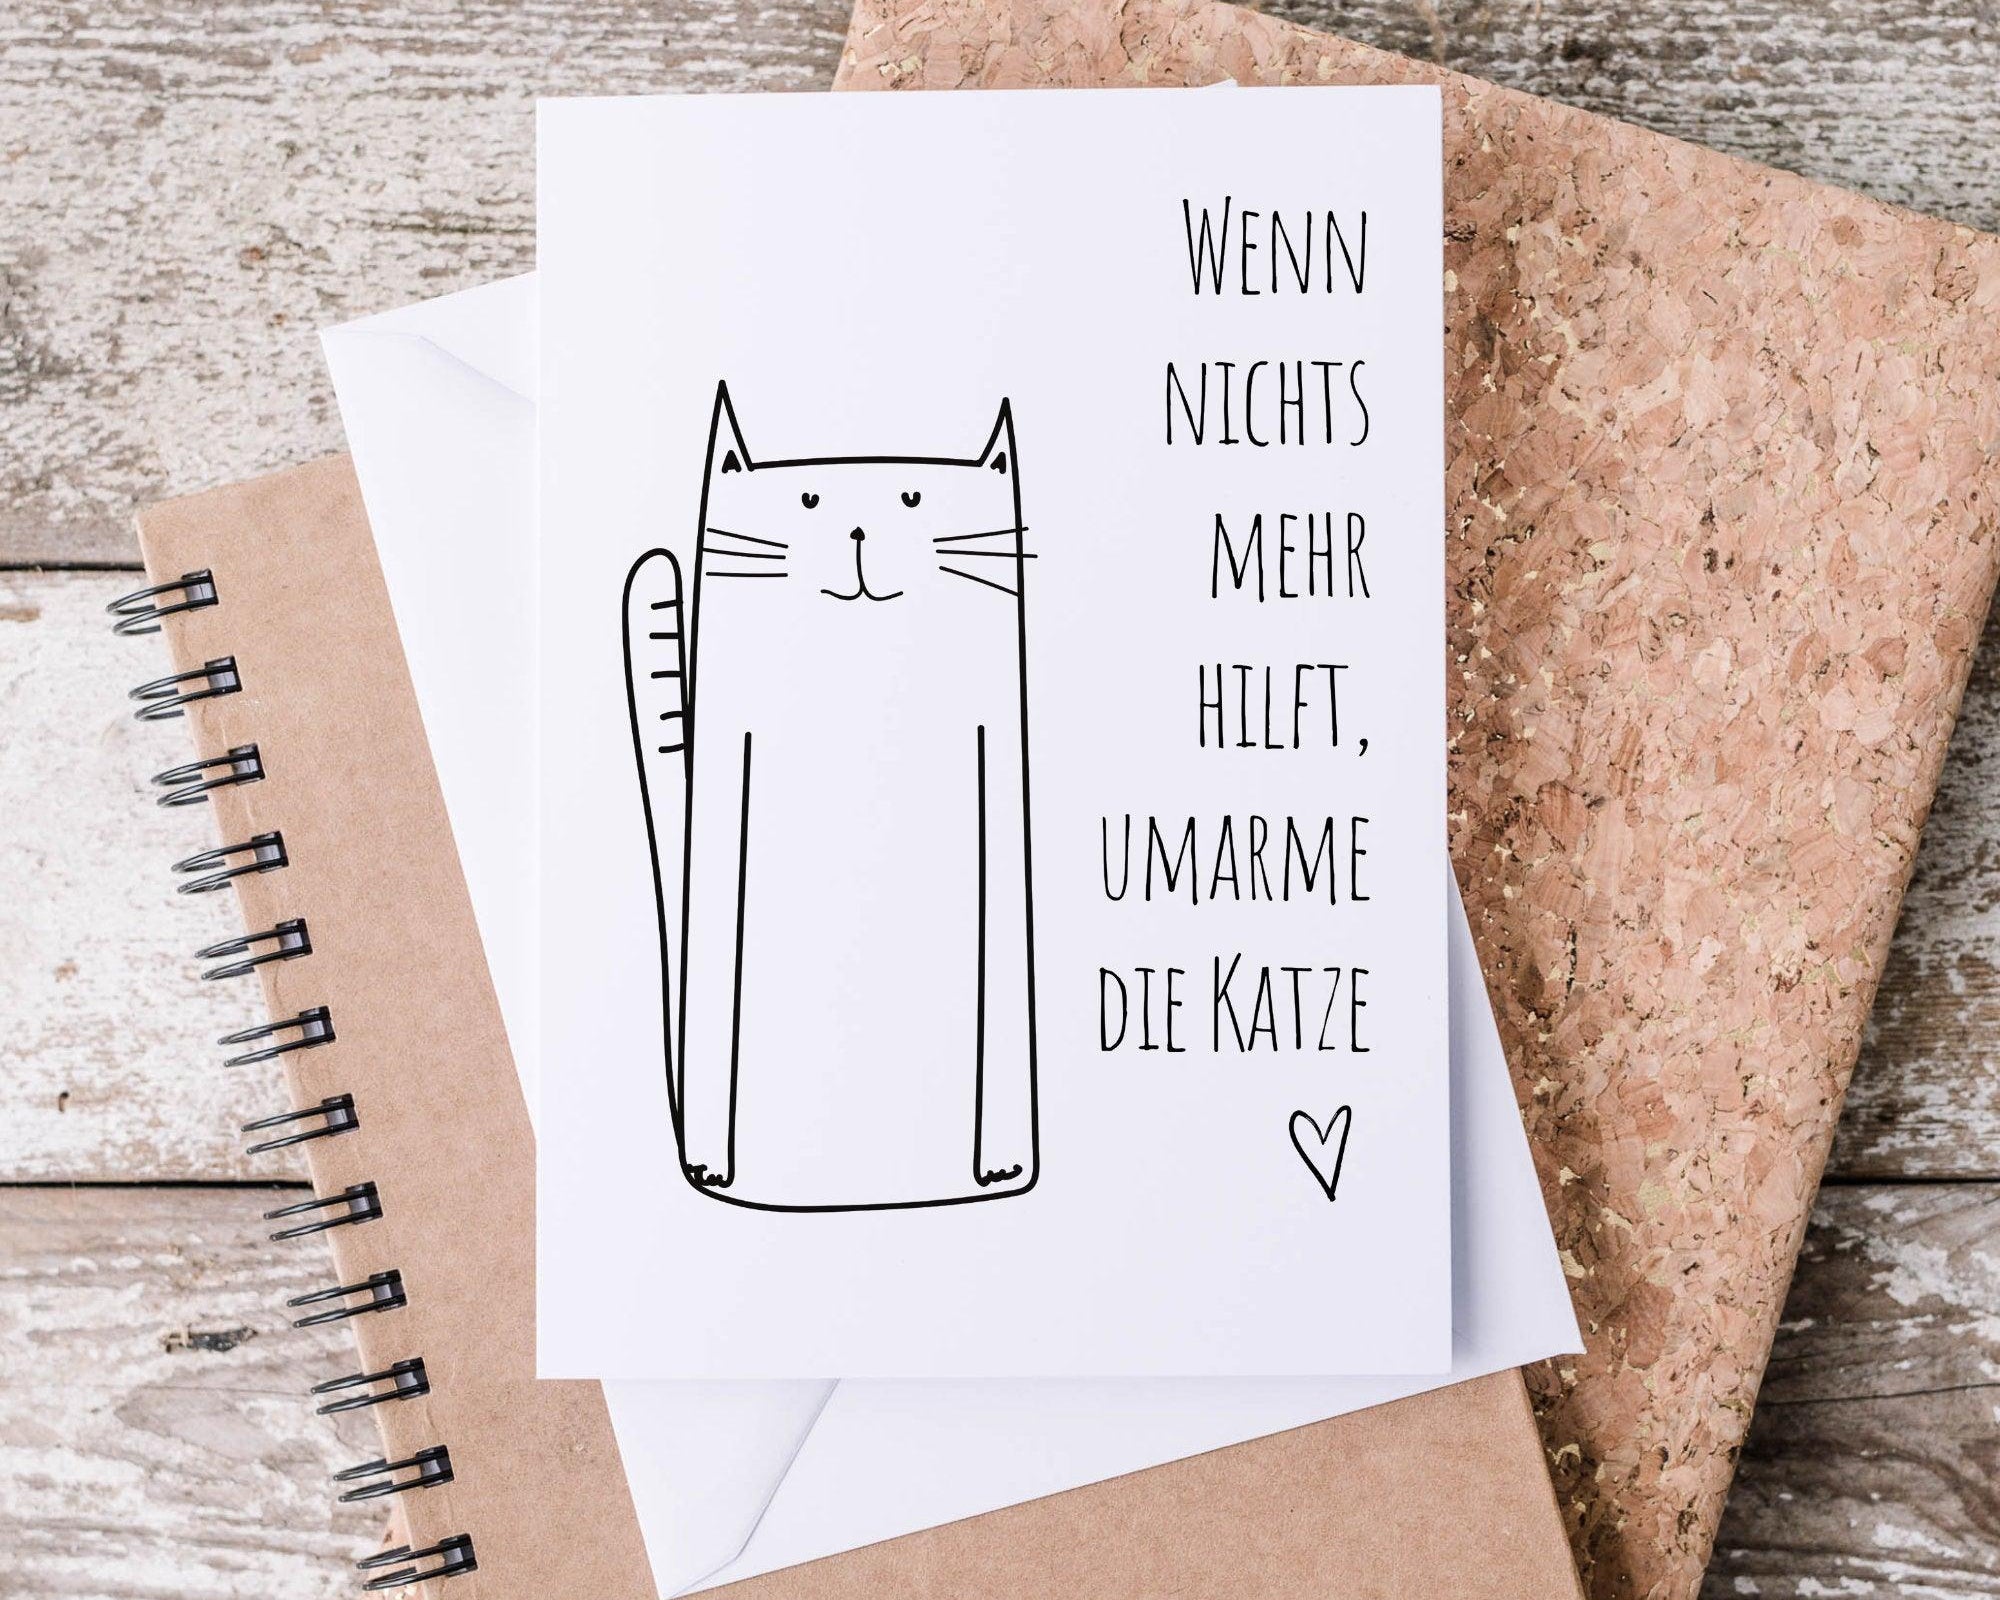 Wenn
nichts
mehr
hilft,
umarme
die Katze